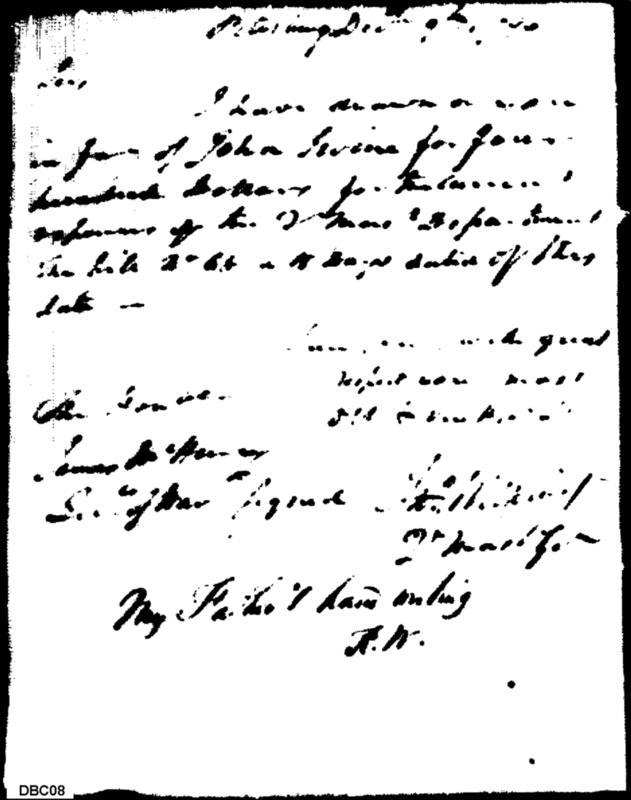 Pittsburg Decr 9th,
Sir
I have drawn on you
in favr of John Irvine for four
hundred Dollars for the current
expences of the Qr Mars Department
the bill No 64 a 10 Days dated of this
date —
I am, sir, with great
respect your most
Obt
The Honble
James McHenry
Secy of War Signed
Qr Mast Gen
My Father's hand writing
DBC08